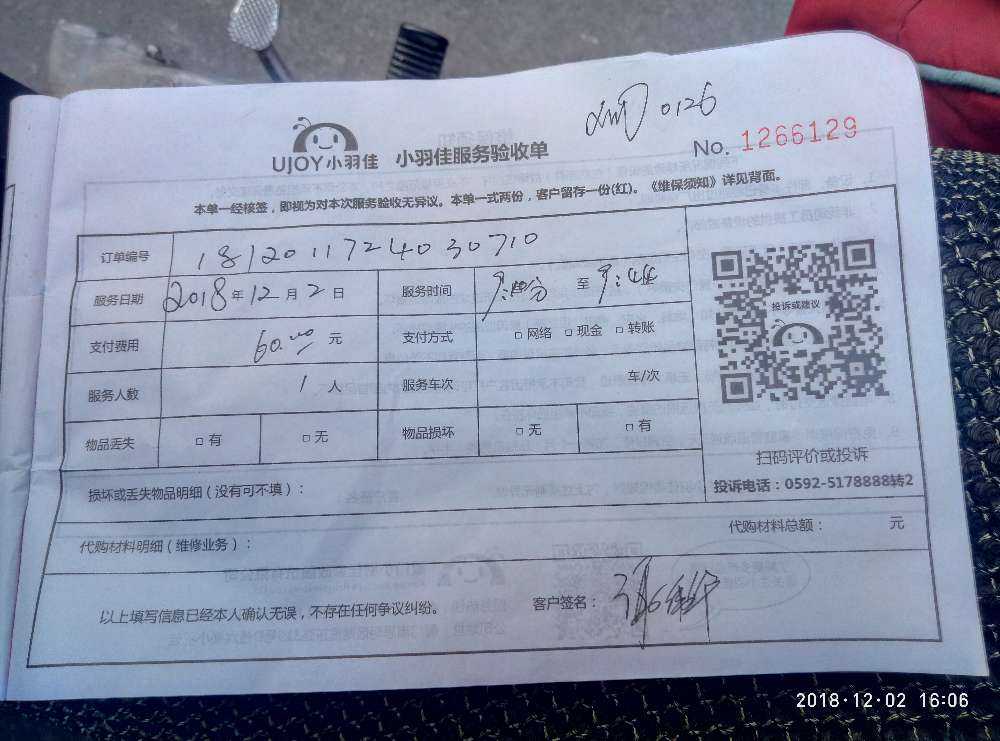 0126
UJOY小羽佳 小羽佳服务验收单
No. 1266129
本单一经核签，即视为对本次服务验收无异议。本单一式两份，客户留存一份(红)。《维保须知》详见背面。
订单编号 1812011724030710
服务日期 2018年12月2日 服务时间 至
支付费用 60.00元 支付方式 □网络 □现金 □转账
服务人数 1人 服务车次 车/次
物品丢失 □有 □无 物品损坏 □无 □有
投诉或建议
扫码评价或投诉
投诉电话：0592-5178888转2
损坏或丢失物品明细（没有可不填）：
代购材料明细（维修业务）： 代购材料总额： 元
以上填写信息已经本人确认无误，不存在任何争议纠纷。 客户签名：
2018·12·02 16:06